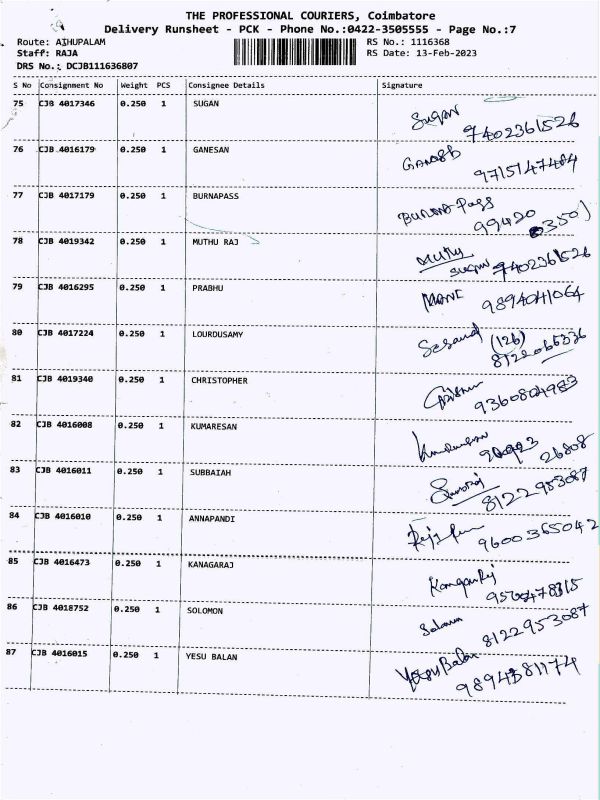 THE PROFESSIONAL COURIERS, Coimbatore
Delivery Runsheet - PCK - Phone No.:0422-3505555 - Page No.:7
Route: ATHUPALAM RS No.: 1116368
Staff: RAJA RS Date: 13-Feb-2023
DRS No.: DCJB111636807
S No Consignment No Weight PCS Consignee Details Signature
75 CJB 4017346 0.250 1 SUGAN Sugan
7402361526
76 CJB 4016179 0.250 1 GANESAN
9715147484
77 CJB 4017179 0.250 1 BURNAPASS
99420
78 CJB 4019342 0.250 1 MUTHU RAJ Muthu
Sugan 7402361526
79 CJB 4016295 0.250 1 PRABHU MANI
9894041064
80 CJB 4017224 0.250 1 LOURDUSAMY (126)
8122065336
81 CJB 4019340 0.250 1 CHRISTOPHER
9360804983
82 CJB 4016008 0.250 1 KUMARESAN Kumaresan
26808
83 CJB 4016011 0.250 1 SUBBAIAH
8122953087
84 CJB 4016010 0.250 1 ANNAPANDI
9600365042
85 CJB 4016473 0.250 1 KANAGARAJ
86 CJB 4018752 0.250 1 SOLOMON
8122953087
87 CJB 4016015 0.250 1 YESU BALAN Yesu Balan